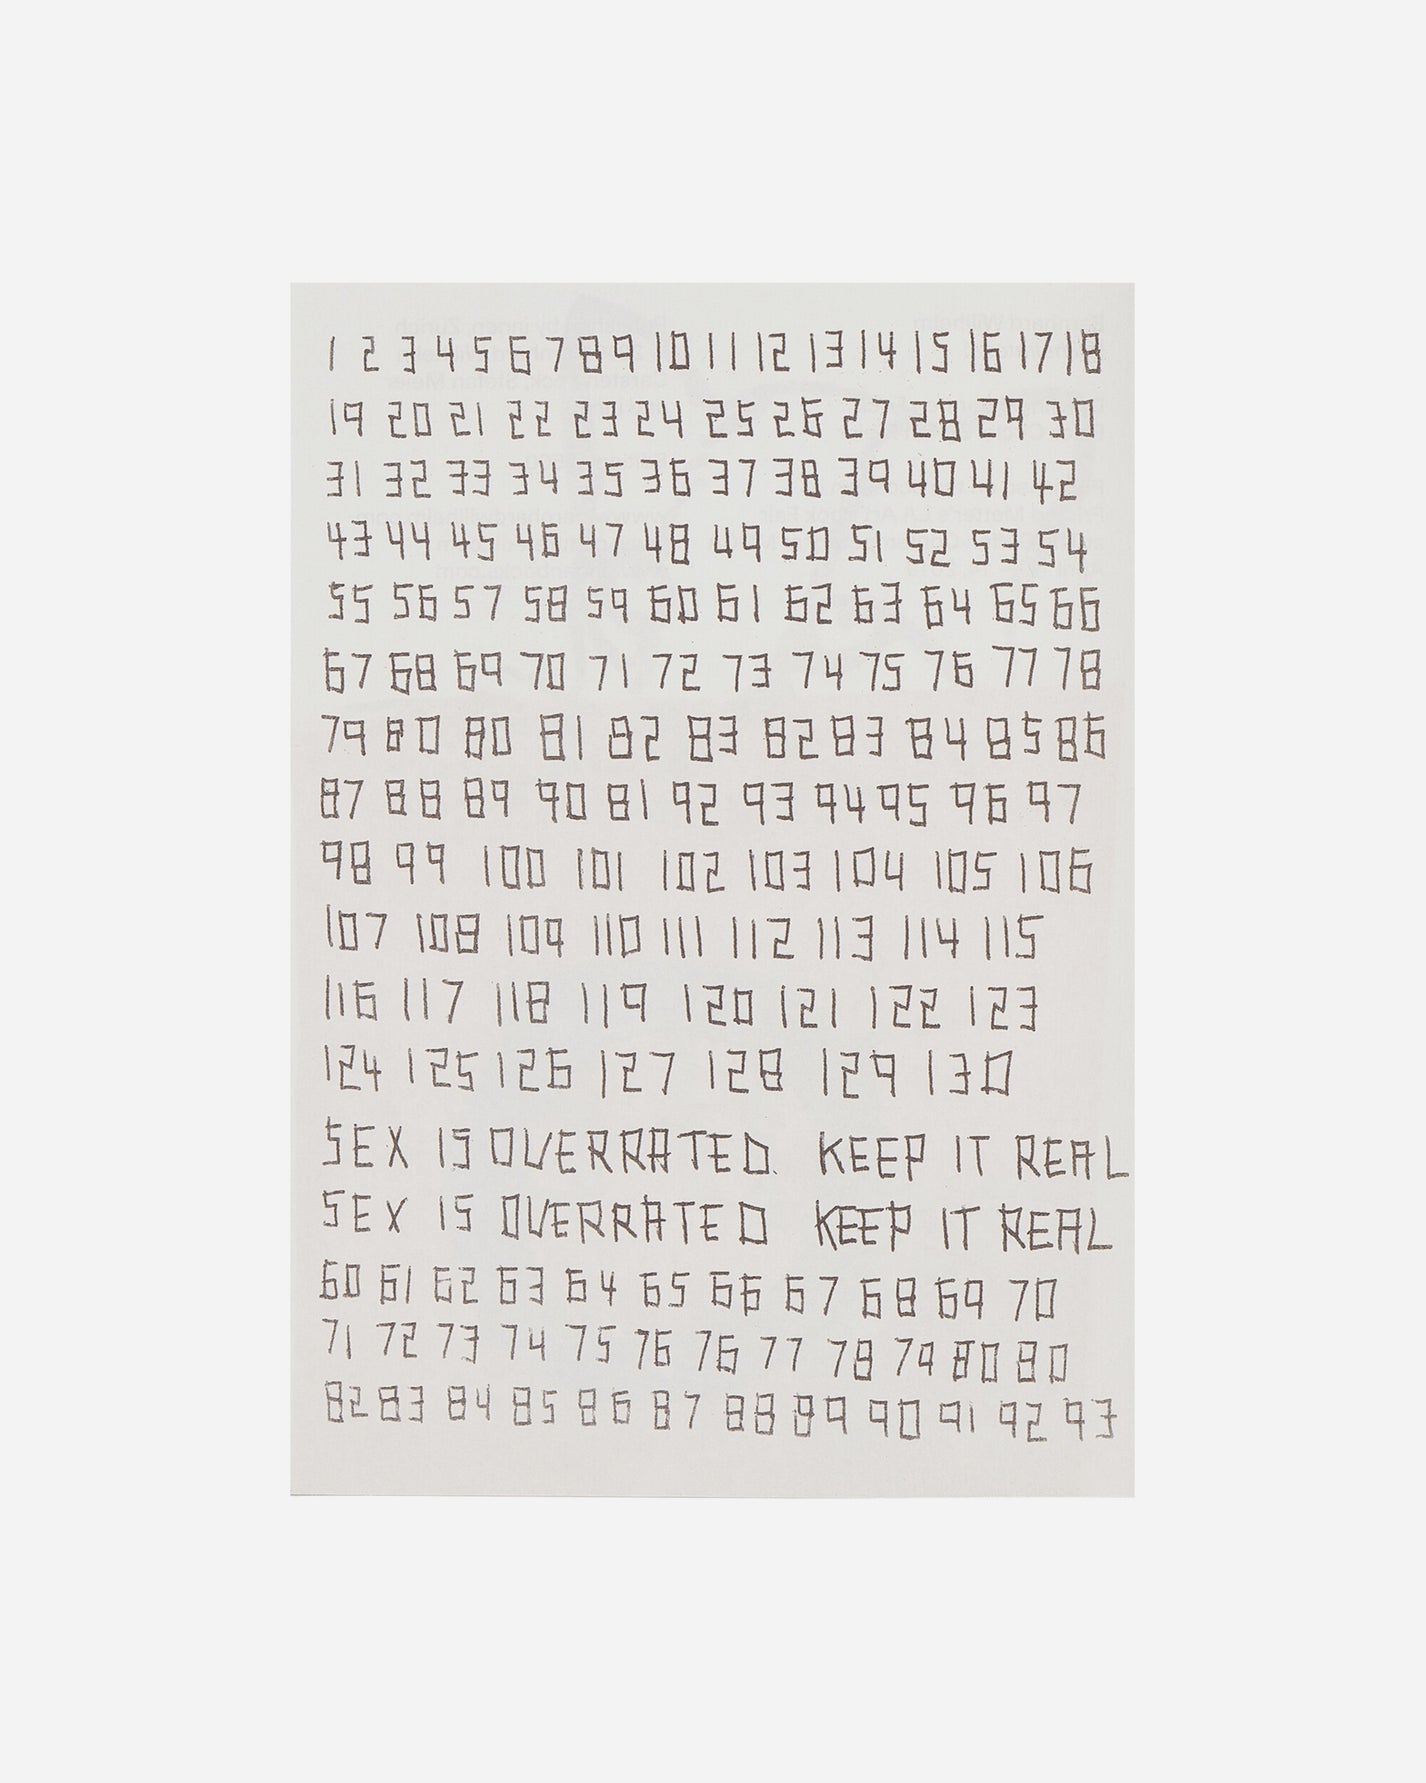 1 2 3 4 5 6 7 8 9 10 11 12 13 14 15 16 17 18
19 20 21 22 23 24 25 26 27 28 29 30
31 32 33 34 35 36 37 38 39 40 41 42
43 44 45 46 47 48 49 50 51 52 53 54
55 56 57 58 59 60 61 62 63 64 65 66
67 68 69 70 71 72 73 74 75 76 77 78
79 80 80 81 82 83 82 83 84 85 86
87 88 89 90 81 92 93 94 95 96 97
98 99 100 101 102 103 104 105 106
107 108 109 110 111 112 113 114 115
116 117 118 119 120 121 122 123
124 125 126 127 128 129 130
SEX IS OVERRATED. KEEP IT REAL
SEX IS OVERRATED KEEP IT REAL
60 61 62 63 64 65 66 67 68 69 70
71 72 73 74 75 76 76 77 78 79 80 80
82 83 84 85 86 87 88 89 90 91 92 93